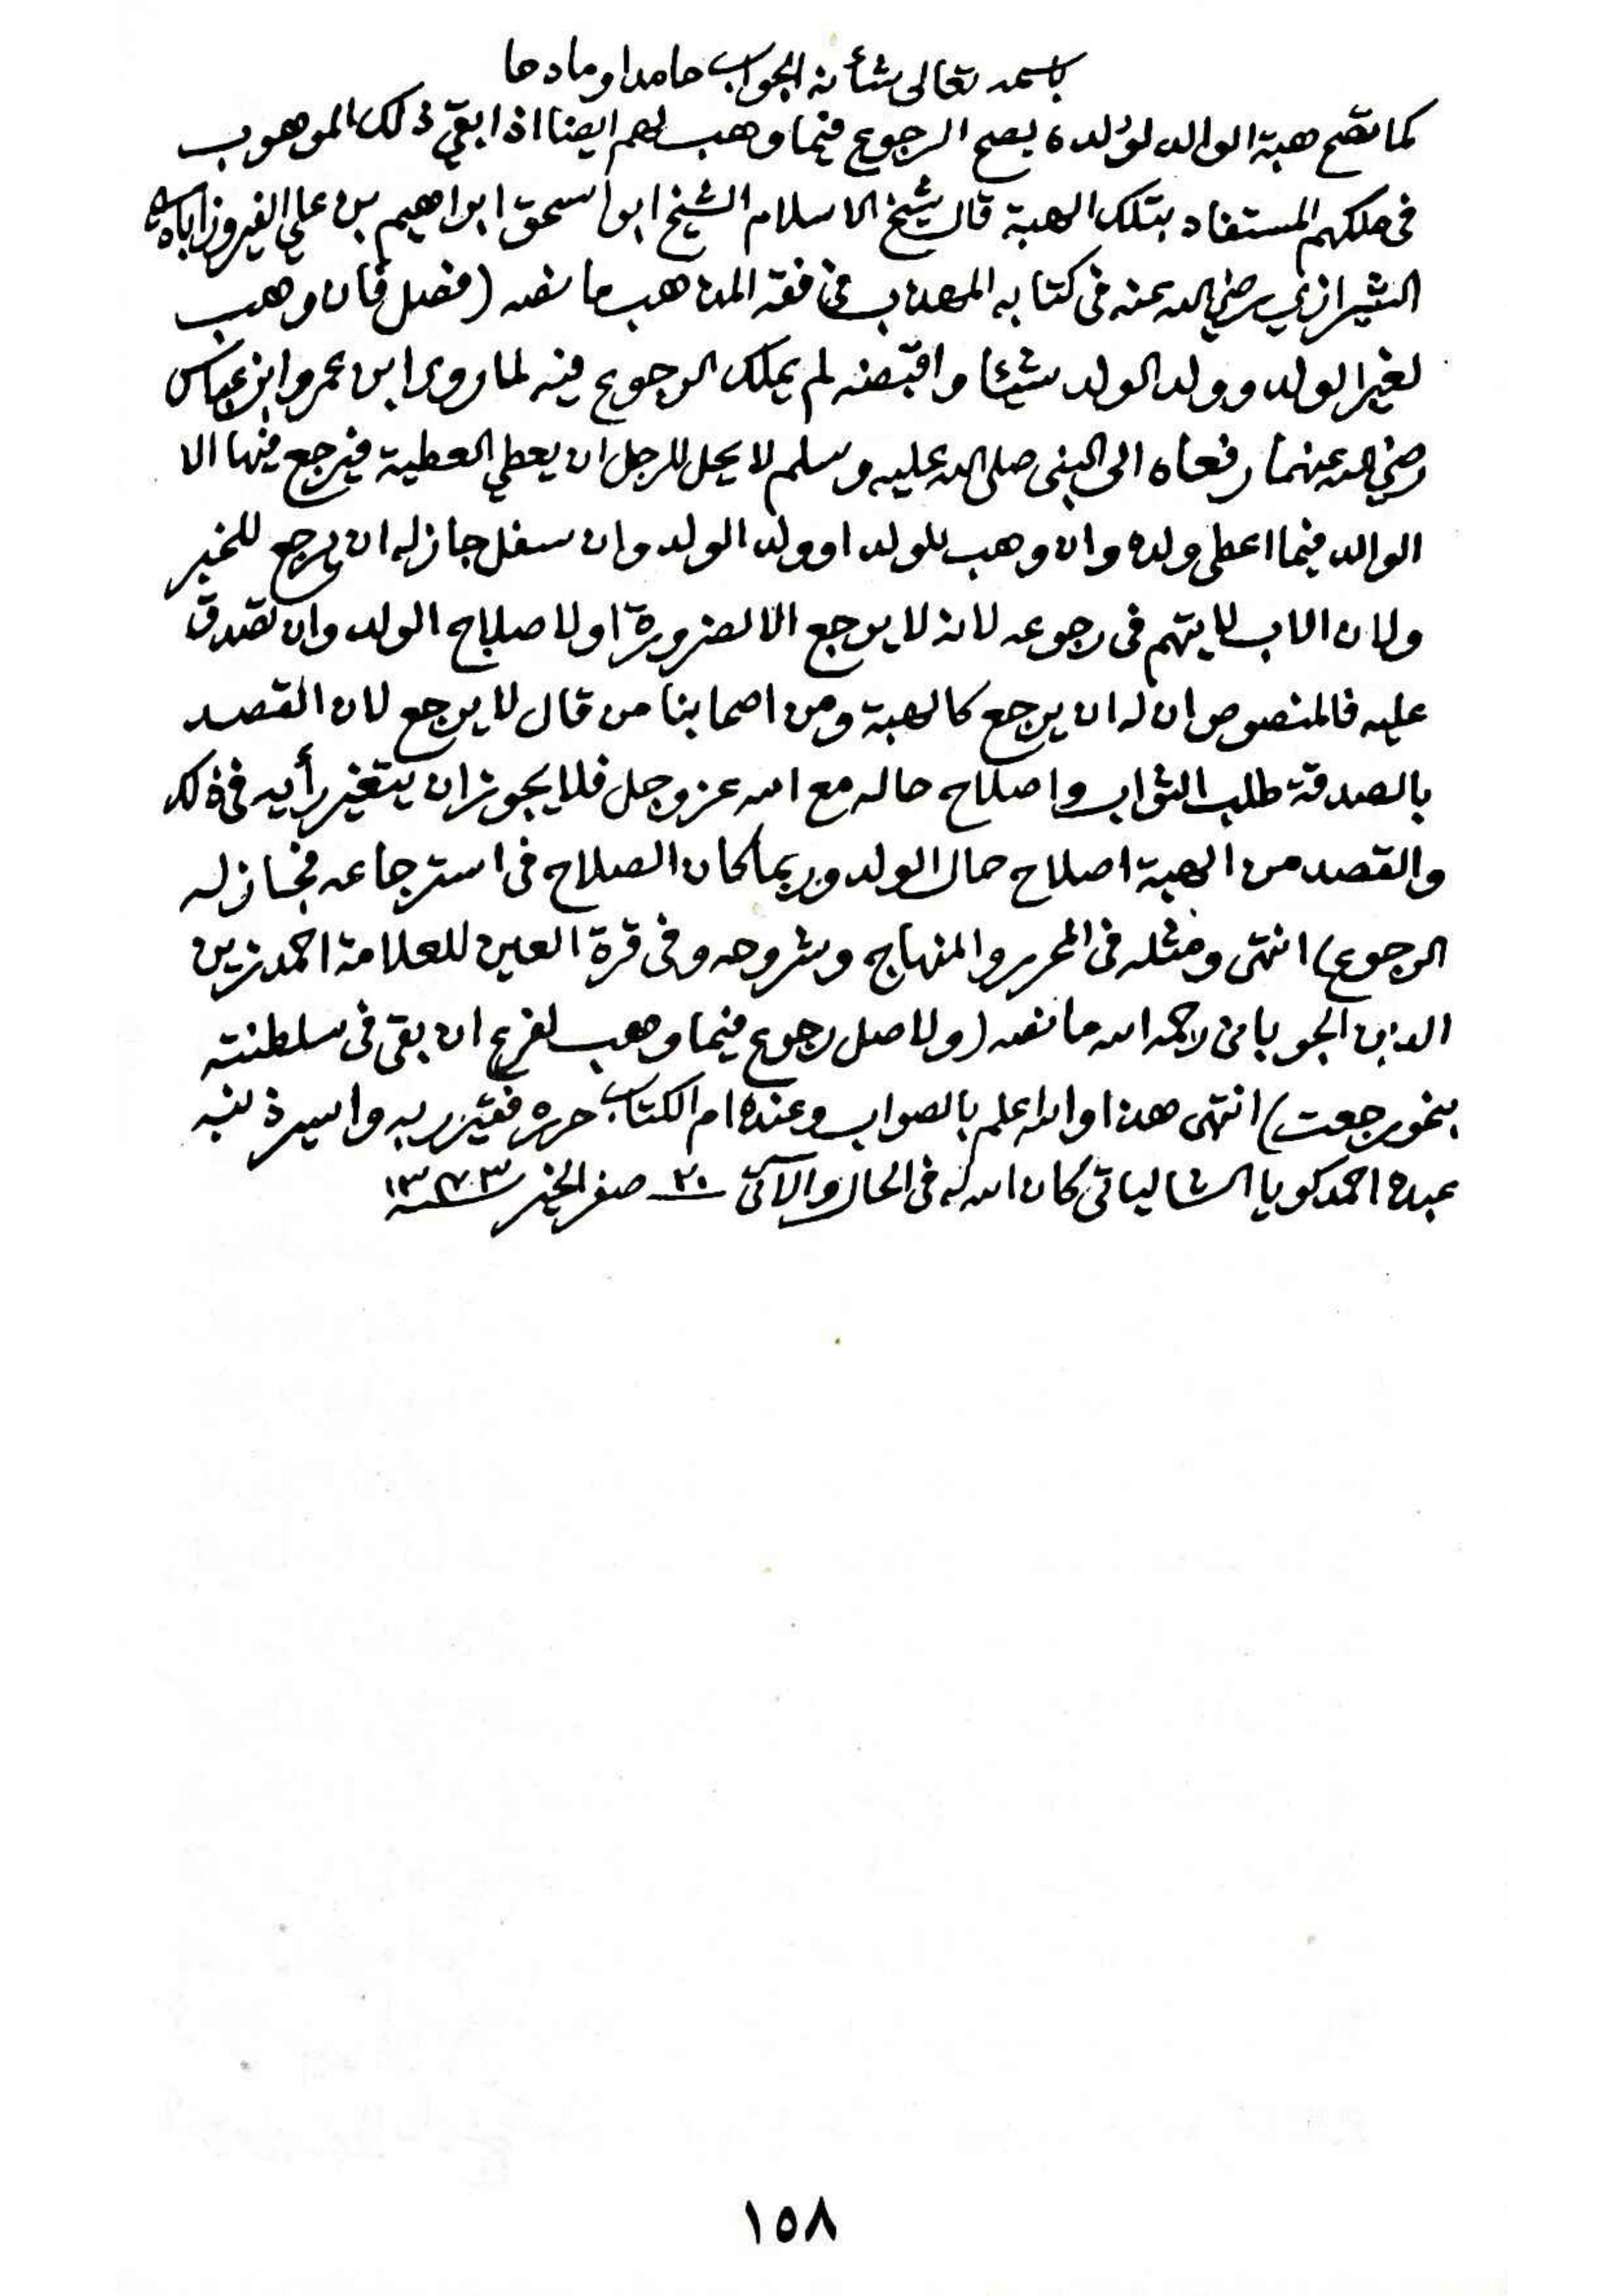 باسمه تعالى شأنه الجواب حامدا ومادحا
كما تصح هبة الوالد لولده يصح الرجوع فيما وهب لهم ايضا اذا بقي ذلك الموهوب
فى ملكهم المستفاد بتلك الهبة قال شيخ الاسلام الشيخ ابو اسحق ابراهيم بن علي الفيروزاباذى
الشيرازي رضي الله عنه فى كتابه المهذب فى فقه المذهب ما نصه (فصل فان وهب
لغير الولد وولد الولد شيئا واقبضه لم يملك الرجوع فيه لما روى ابن عمر وابن عباس
رضي الله عنهما رفعاه الى النبى صلى الله عليه وسلم لا يحل للرجل ان يعطي العطية فيرجع فيها الا
الوالد فيما اعطى ولده وان وهب للولد او ولد الولد وان سفل جاز له ان يرجع للخبر
ولان الاب لا يتهم فى رجوعه لانه لا يرجع الا لضرورة او لاصلاح الولد وان تصدق
عليه فالمنصوص ان له ان يرجع كالهبة ومن اصحابنا من قال لا يرجع لان القصد
بالصدقة طلب الثواب واصلاح حاله مع الله عز وجل فلا يجوز ان يتغير رأيه فى ذلك
والقصد من الهبة اصلاح حال الولد وربما كان الصلاح فى استرجاعه فجاز له
الرجوع) انتهى ومثله فى المحرر والمنهاج وشروحه وفى قرة العين للعلامة احمد زين
الدين الجوبانى رحمه الله ما نصه (ولاصل رجوع فيما وهب لفرع ان بقى فى سلطنته
بنحو رجعت) انتهى هذا والله اعلم بالصواب وعنده ام الكتاب حرره فقير ربه واسير ذنبه
عبده احمد كويا الشالياتى كان الله له فى الحال والآتى ٢٠ صفر الخير سنة ١٣٧٣
١٥٨